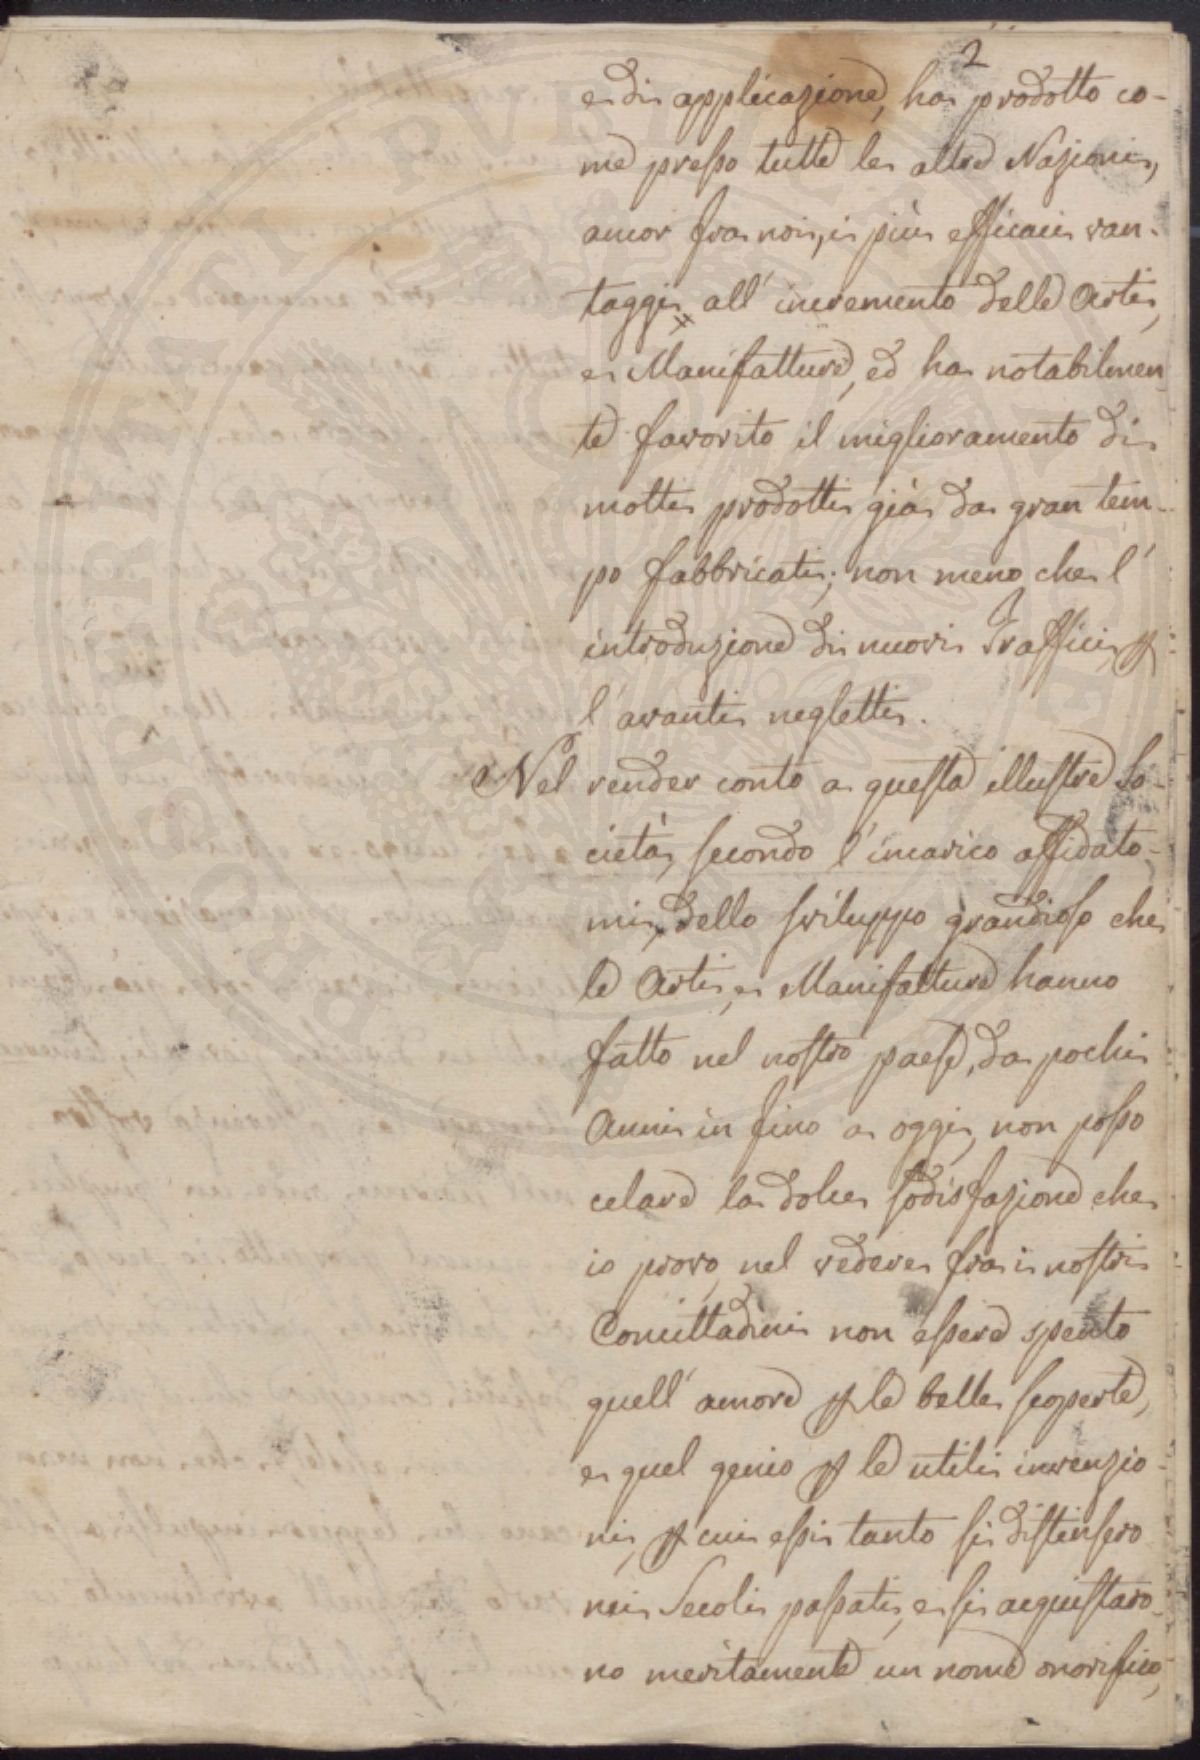 2
e di applicazione, ha prodotto co-
me presso tutte le altre Nazioni,
ancor fra noi, i più efficaci van-
taggi all' incremento delle Arti,
e Manifatture, ed ha notabilmen
te favorito il miglioramento di
molti prodotti già da gran tem-
po fabbricati; non meno che l'
introduzione di nuovi Traffici p
l' avanti negletti.
Nel render conto a questa illustre So-
cietà, secondo l' incarico affidato-
mi, dello sviluppo grandioso che
le Arti, e Manifatture hanno
fatto nel nostro paese, da pochi
Anni in fino a oggi, non posso
celare la dolce sodisfazione che
io provo nel vedere fra i nostri
Concittadini non essere spento
quell' amore p le belle scoperte,
e quel genio p le utili invenzio-
ni, p cui essi tanto si distinsero
nei Secoli passati, e si acquistaro-
no meritamente un nome onorifico,
PROSPERITATI PUBLICAE